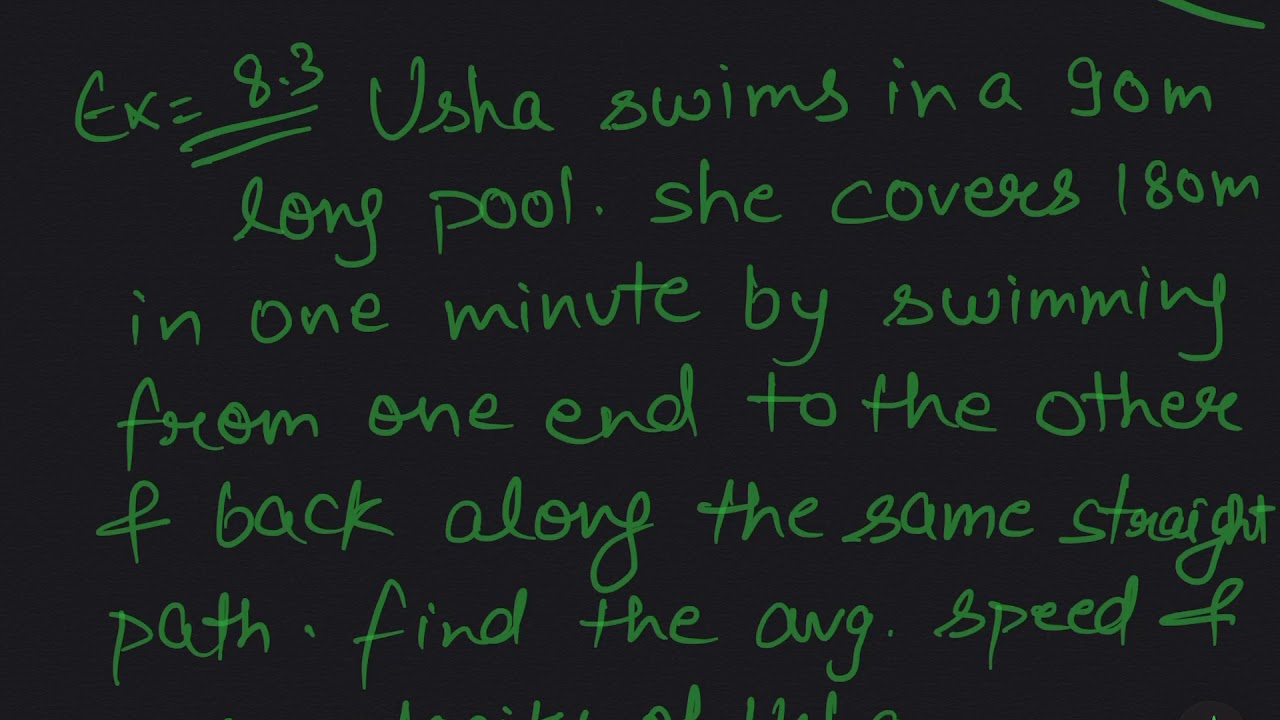 Ex= 8.3 Usha swims in a 90m
long pool. she covers 180m
in one minute by swimming
from one end to the other
& back along the same straight
path. find the avg. speed &
of Usha